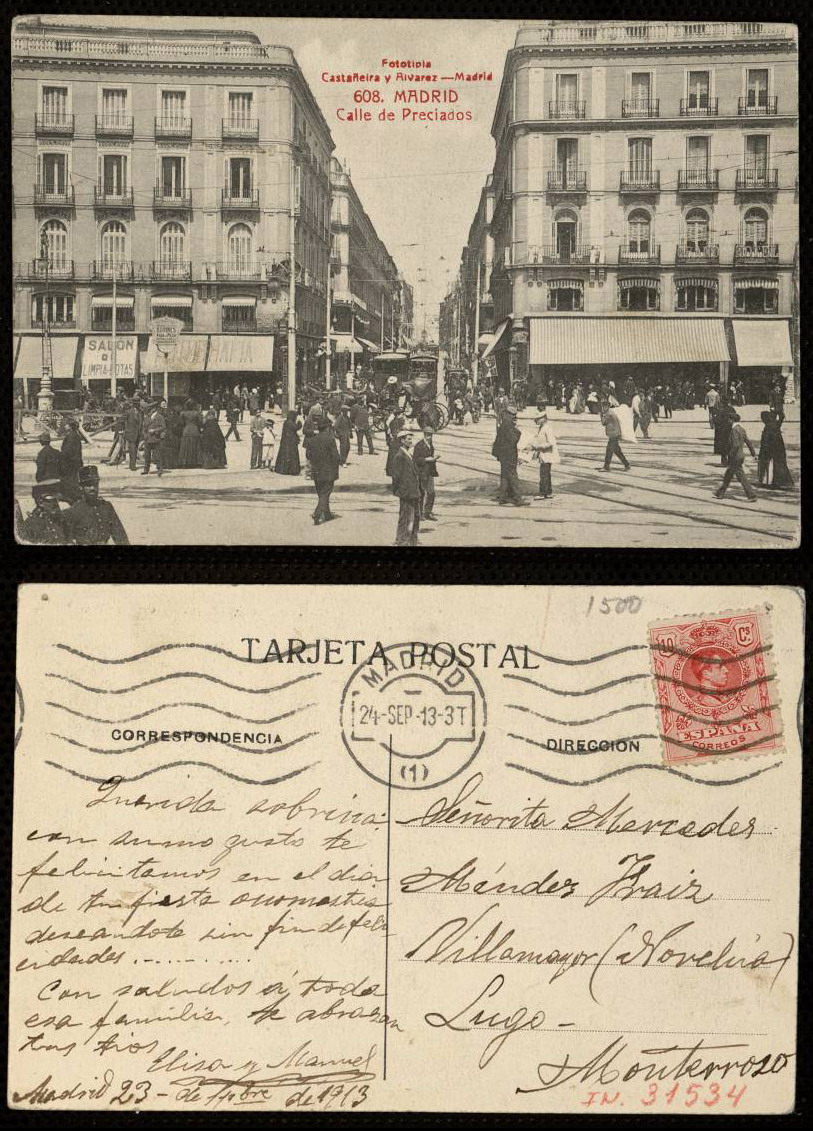 Fototipia
Castañeira y Alvarez —Madrid
608. MADRID
Calle de Preciados
SALÓN
LIMPIA-BOTAS
FOTOGRAFIA
1500
TARJETA POSTAL
MADRID
24-SEP-13-3T
(1)
10 Cs
ESPAÑA
CORREOS
CORRESPONDENCIA
DIRECCION
Querida sobrina:
con sumo gusto te
felicitamos en el dia
de tu fiesta onomastica
deseandote sin fin de feli-
cidades ..........
Con saludos á toda
esa familia, te abrazan
tus tios
Elisa y Manuel
Madrid 23 - de 7bre de 1913
Señorita Mercedes
Méndez
Villamayor (Novelúa)
Lugo -
Monterroso
IN. 31534